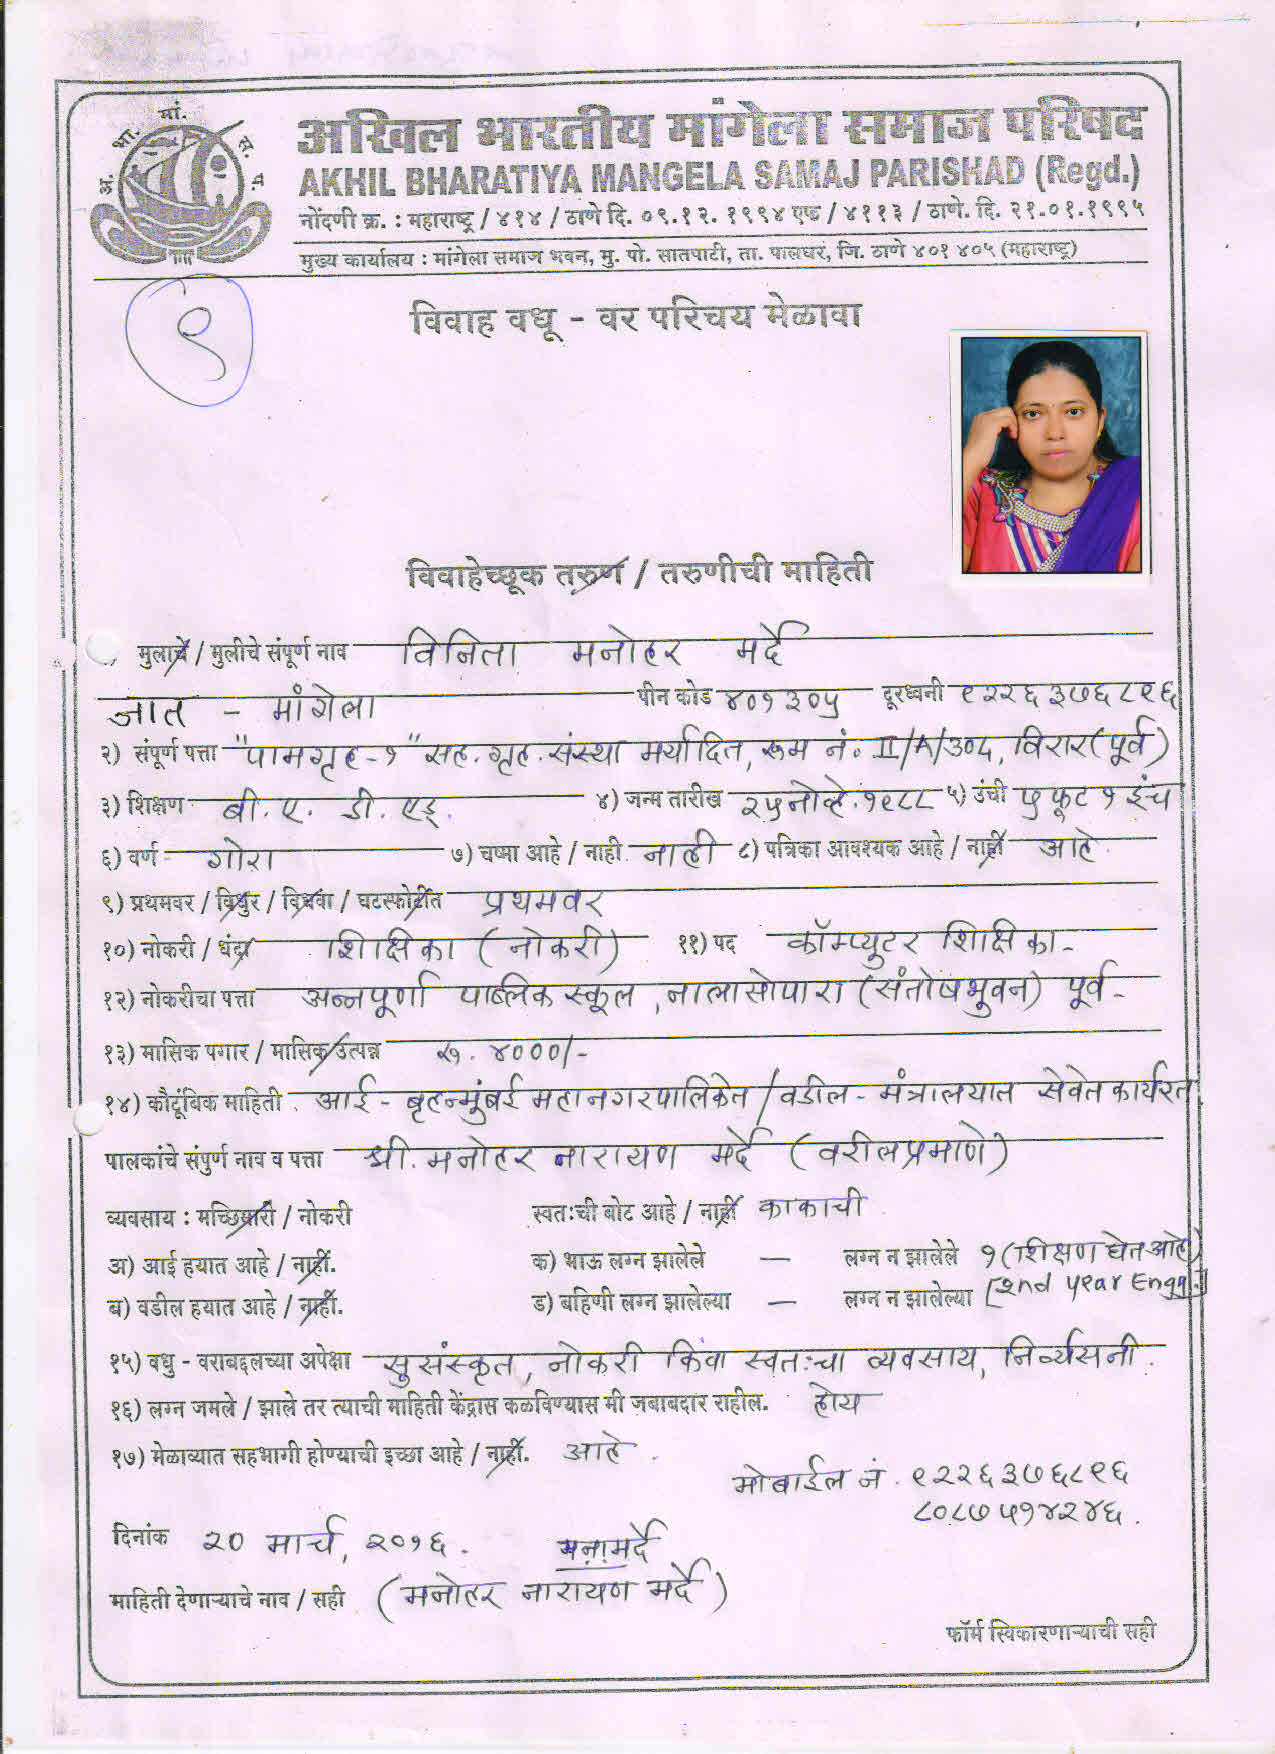 अ. भा. मां. स. प.
अखिल भारतीय मांगेला समाज परिषद
AKHIL BHARATIYA MANGELA SAMAJ PARISHAD (Regd.)
नोंदणी क्र. : महाराष्ट्र / ४१४ / ठाणे दि. ०९.१२. १९९४ एफ / ४११३ / ठाणे. दि. २१.०१.१९९५
मुख्य कार्यालय : मांगेला समाज भवन, मु. पो. सातपाटी, ता. पालघर, जि. ठाणे ४०१ ४०५ (महाराष्ट्र)
९
विवाह वधू - वर परिचय मेळावा
विवाहेच्छूक तरुण / तरुणीची माहिती
मुलाचे / मुलीचे संपूर्ण नाव विनिता मनोहर मर्दे
जात - मांगेला पीन कोड ४०१३०५ दूरध्वनी ९२२६३७६८९६
२) संपूर्ण पत्ता "पामगृह-१" सह. गृह. संस्था मर्यादित, रूम नं. II/A/३०८, विरार (पूर्व)
३) शिक्षण बी. ए. डी. एड्. ४) जन्म तारीख २५ नोव्हे. १९८८ ५) उंची ५ फूट १ इंच
६) वर्ण गोरा ७) चष्मा आहे / नाही नाही ८) पत्रिका आवश्यक आहे / नाही आहे.
९) प्रथमवर / विधुर / विधवा / घटस्फोटीत प्रथमवर
१०) नोकरी / धंदा शिक्षिका (नोकरी) ११) पद कॉम्प्युटर शिक्षिका-
१२) नोकरीचा पत्ता अन्नपूर्णा पब्लिक स्कूल, नालासोपारा (संतोषभुवन) पूर्व-
१३) मासिक पगार / मासिक उत्पन्न रु. ४०००/-
१४) कौटूंबिक माहिती. आई - बृहन्मुंबई महानगरपालिकेत / वडील - मंत्रालयात सेवेत कार्यरत.
पालकांचे संपुर्ण नाव व पत्ता श्री. मनोहर नारायण मर्दे (वरीलप्रमाणे)
व्यवसाय : मच्छिमारी / नोकरी स्वतःची बोट आहे / नाही काकाची
अ) आई हयात आहे / नाही. क) भाऊ लग्न झालेले — लग्न न झालेले १ (शिक्षण घेत आहे)
ब) वडील हयात आहे / नाही. ड) बहिणी लग्न झालेल्या — लग्न न झालेल्या [2nd year Engg.]
१५) वधु - वराबद्दलच्या अपेक्षा सुसंस्कृत, नोकरी किंवा स्वतःचा व्यवसाय, निर्व्यसनी.
१६) लग्न जमले / झाले तर त्याची माहिती केंद्रास कळविण्यास मी जबाबदार राहील. होय
१७) मेळाव्यात सहभागी होण्याची इच्छा आहे / नाही. आहे.
मोबाईल नं. ९२२६३७६८९६
८०८७५१४२४६.
दिनांक २० मार्च, २०१६. मनामर्दे
माहिती देणाऱ्याचे नाव / सही (मनोहर नारायण मर्दे)
फॉर्म स्विकारणाऱ्याची सही